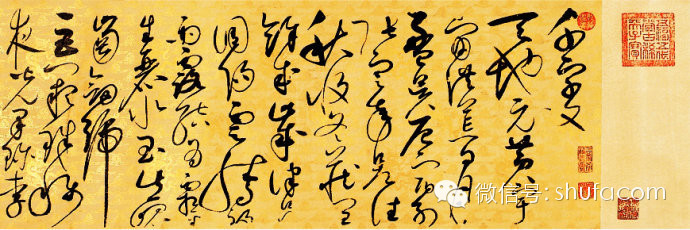 千字文
天地元黃宇
宙洪荒日月
盈昃辰宿列
張寒來暑往
秋收冬藏閏
餘成歲律呂
調陽雲騰致
雨露結為霜金
生麗水玉出崐
崗劍號
巨闕珠稱
夜光果珍李
微信号: shufacom